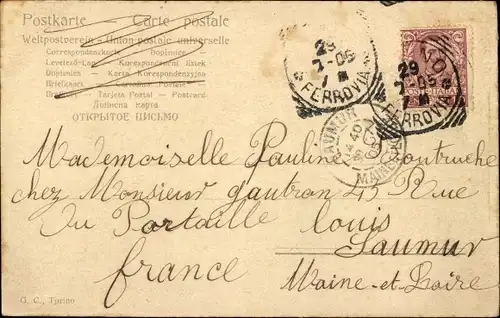 Postkarte — Carte postale
Weltpostverein - Union postale universelle
Correspondenzkarte — Dopisnice
Levelező-Lap — Korespondenční lístek
Dopisnica — Karta Korespondencyjna
Briefkaart — Cartolina Postale
Brevkort — Tarjeta Postal — Postcard
Дописна карта
ОТКРЫТОЕ ПИСЬМО
29
7-05
FERROVIA
29
7-05
FERROVIA
POSTE ITALIANE
SAUMUR
MAINE
Mademoiselle Pauline
chez Monsieur gautron 45 Rue
Du Portaille louis
Saumur
france Maine-et-Loire
G. C., Torino